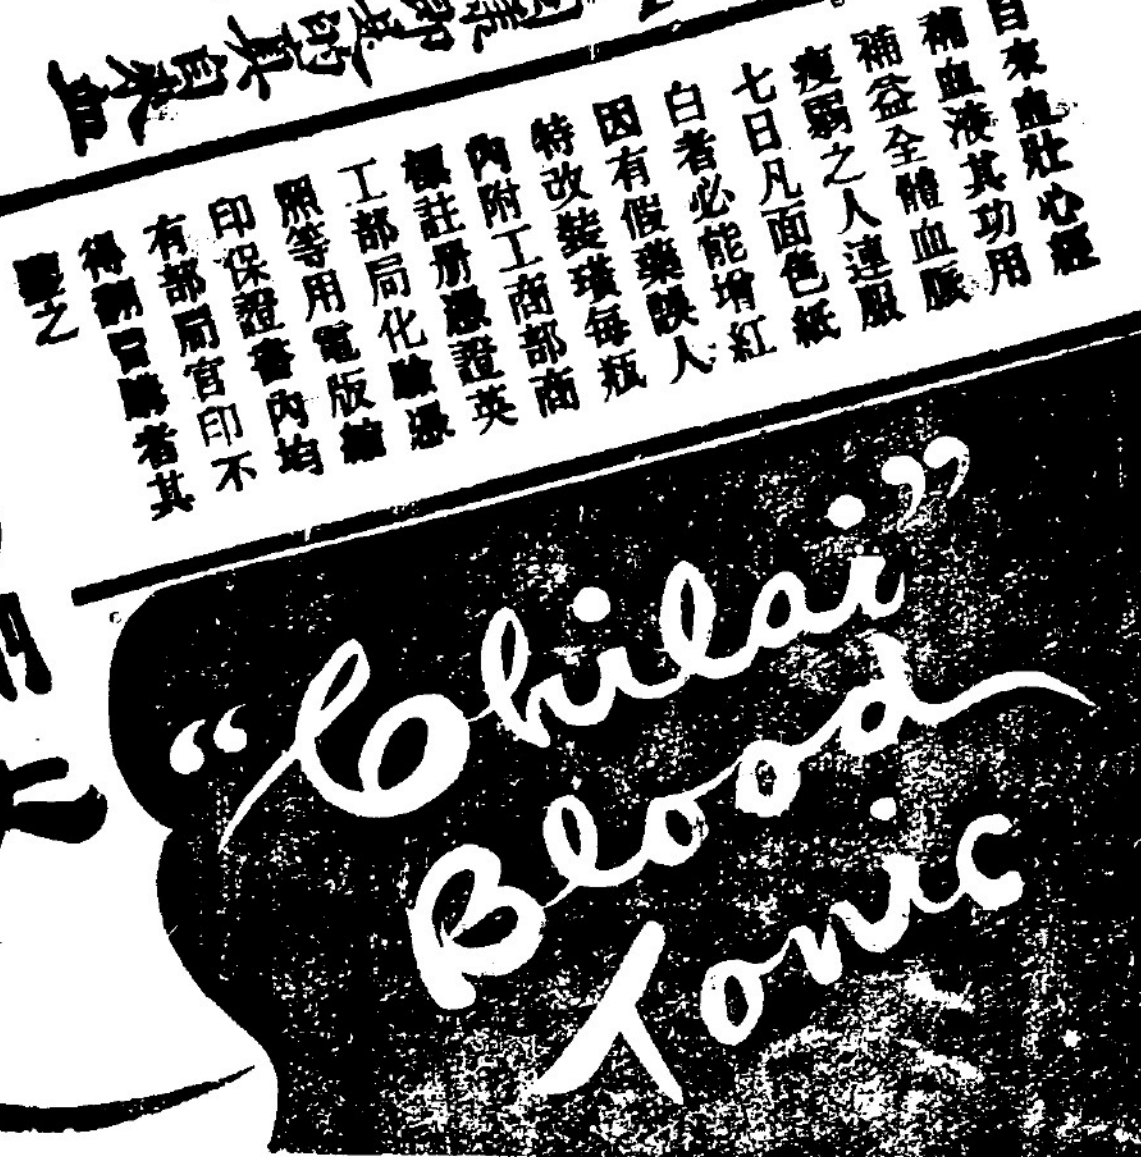 自來血
自來血壯心經
補血液其功用
補益全體血脈
瘦弱之人連服
七日凡面色紙
白者必能增紅
因有假藥誤人
特改裝璜每瓶
內附工商部商
標註册憑證英
工部局化驗憑
照等用電版縮
印保證書內均
有部局官印不
得翻冒購者其
鑒之
“Chilai”
Blood
Tonic